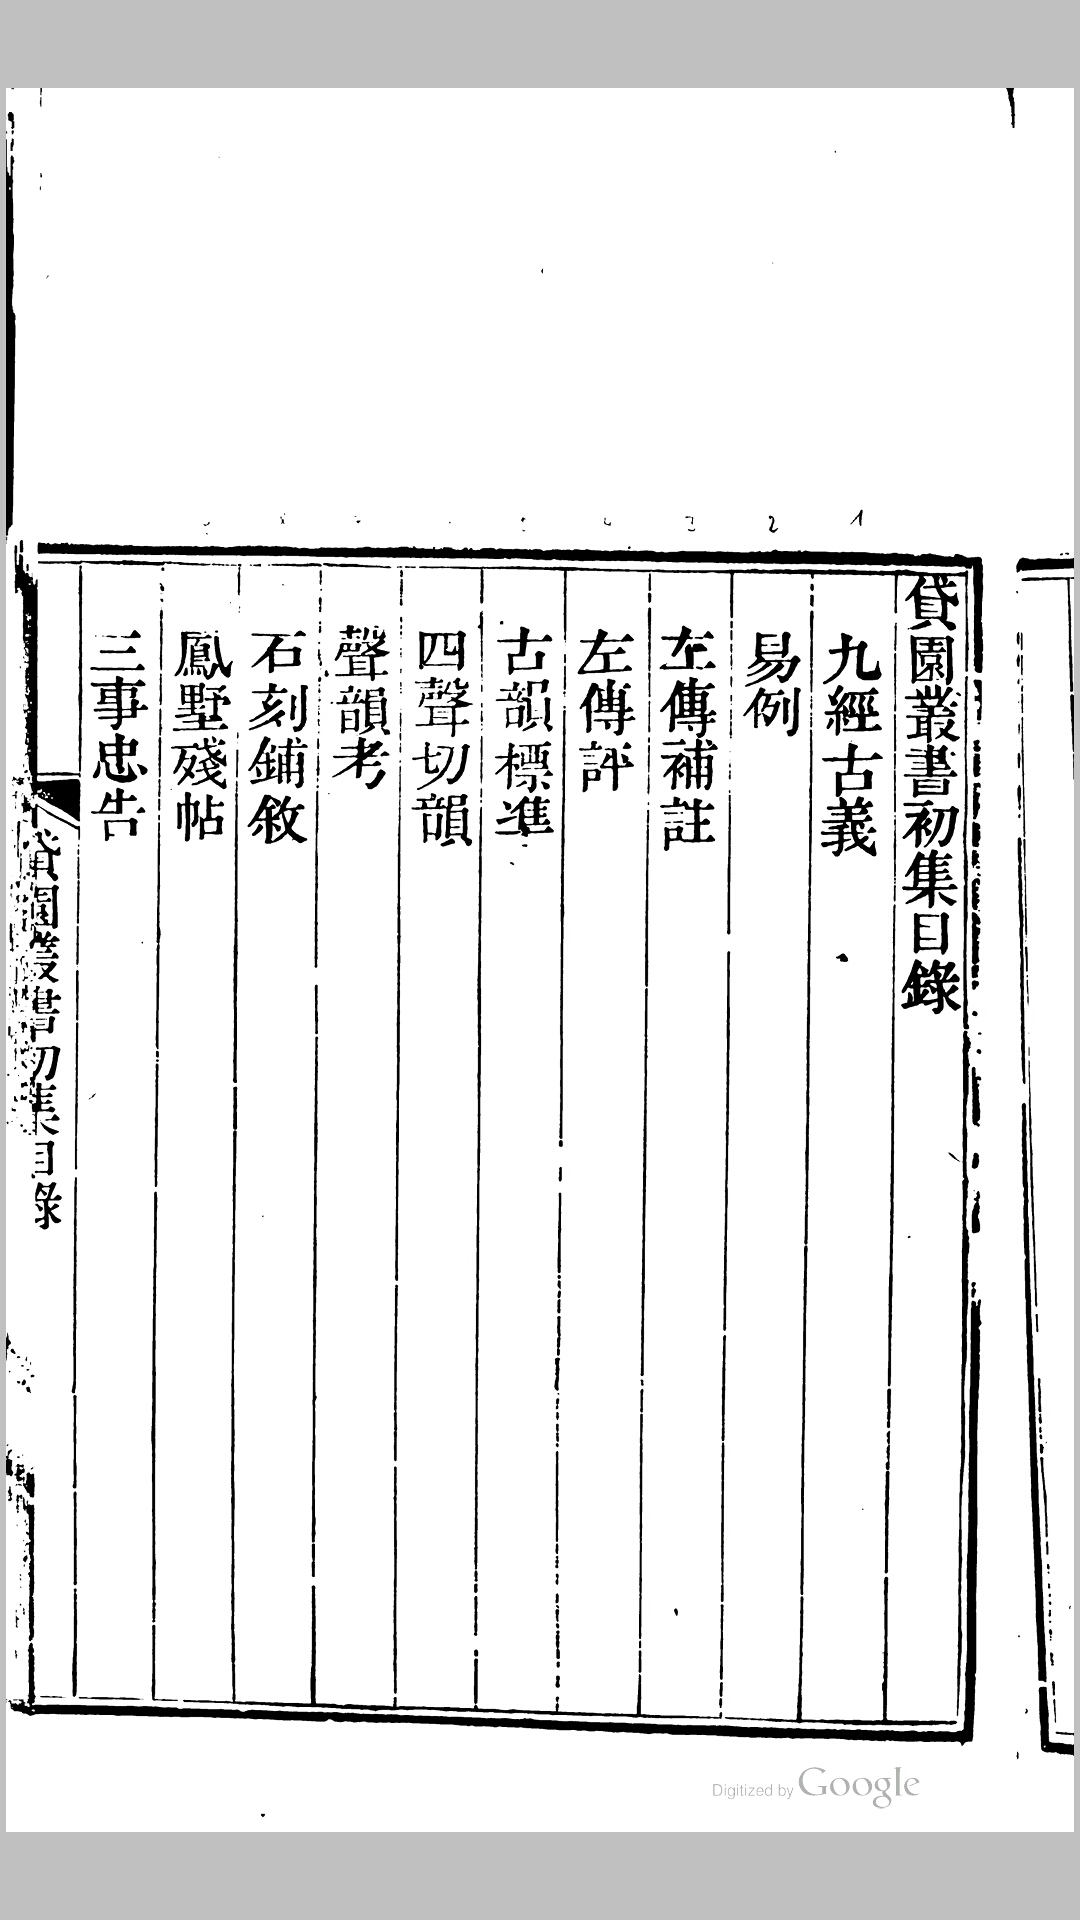 貸園叢書初集目錄
九經古義
易例
左傳補註
左傳評
古韻標準
四聲切韻
聲韻考
石刻鋪敘
鳳墅殘帖
三事忠告
貸園叢書初集目錄
1
2
3
4
Digitized by Google